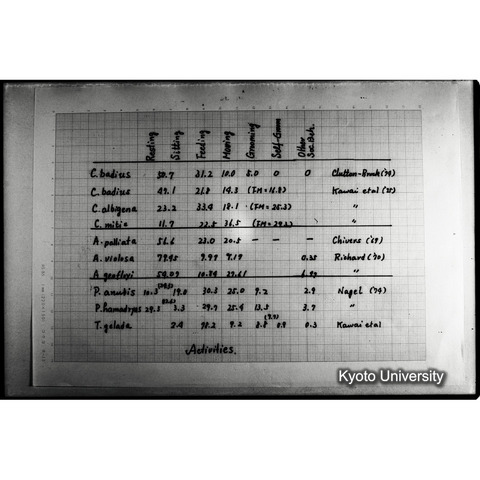 Resting Sitting Feeding Moving Grooming Self-Groom Other Soc. Beh.
C. badius 50.7 31.2 10.0 5.0 0 0 Clutton-Brock ('74)
C. badius 49.1 21.8 14.3 (IM=14.8) Kawai et al ('75)
C. albigena 23.2 33.4 18.1 (IM=25.3) "
C. mitis 11.7 36.5 "
A. palliata 51.6 23.0 20.5 — — — Chivers ('69)
A. violosa 79.95 9.97 9.19 0.35 Richard ('70)
A. geoffroyi "
P. anubis 10.3 19.0 30.3 25.0 9.2 2.9 Nagel ('74)
P. hamadryas 29.5 3.3 29.7 25.4 13.3 3.7 "
T. gelada 2.4 9.2 0.3 Kawai et al
Activities.
Kyoto University